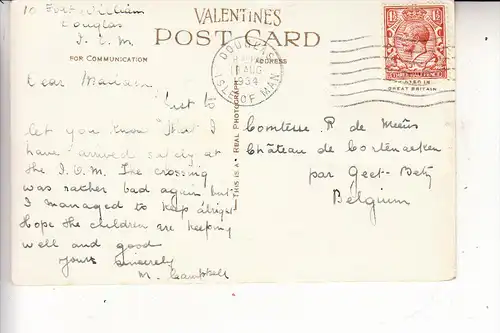 10 Fort William
Douglas
I. O. M.
VALENTINES
POST CARD
FOR COMMUNICATION
ADDRESS
DOUGLAS
AUG
1934
ISLE OF MAN
GREAT BRITAIN
THIS IS A REAL PHOTOGRAPH
Dear Madam
Just to
let you know that I
have arrived safely at
the I.O.M. The crossing
was rather bad again but
I managed to keep alright
Hope the children are keeping
well and good
Yours sincerely
M. Campbell
Comtesse R de Meeûs
Château de Cortenaeken
par Geet-Betz
Belgium